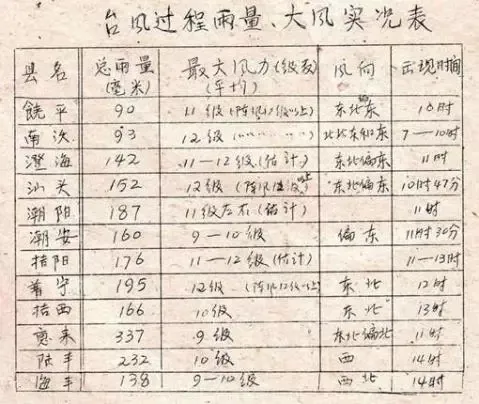 台风过程雨量、大风实况表
县名 总雨量(毫米) 最大风力(级数)(平均) 风向 出现时间
饶平 90 11级(阵风12级以上) 东北东 10时
南次 93 12级(……) 北北东和东 7—10时
澄海 142 11—12级(估计) 东北偏东 11时
汕头 152 12级(阵风12级以上) 东北偏东 10时47分
潮阳 187 11级左右(估计) 11时
潮安 160 9—10级 偏东 11时30分
揭阳 176 11—12级(估计) 11—13时
普宁 195 12级(阵风12级以上) 东北 12时
揭西 166 10级 东北 13时
惠来 337 9级 东北偏北 11时
陆丰 232 10级 西 14时
海丰 138 9—10级 西北 14时